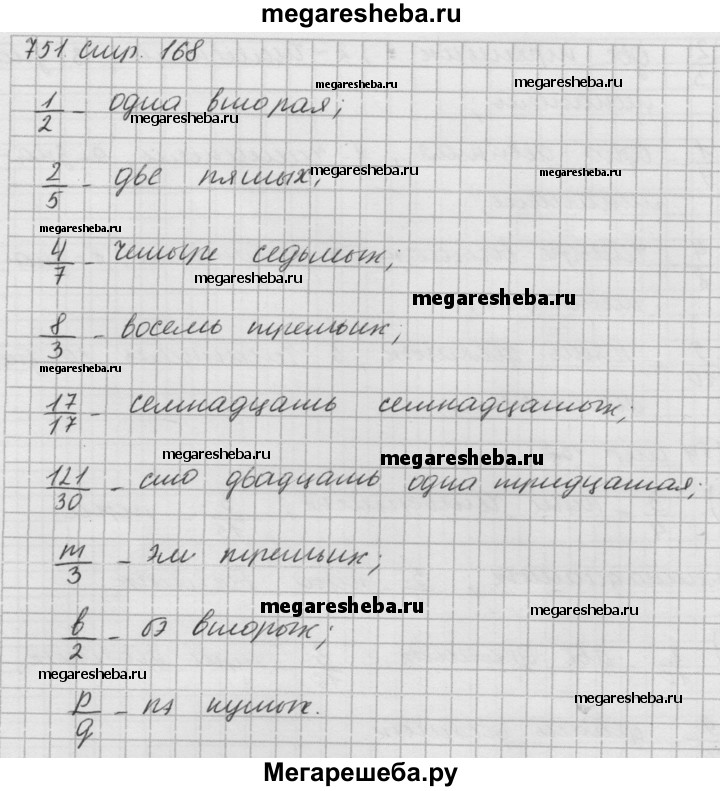 megaresheba.ru
751 стр. 168
megaresheba.ru megaresheba.ru
1/2 - одна вторая;
megaresheba.ru
2/5 - две пятых; megaresheba.ru megaresheba.ru
megaresheba.ru
4/7 - четыре седьмых;
megaresheba.ru
megaresheba.ru
8/3 - восемь третьих;
megaresheba.ru
17/17 - семнадцать семнадцатых;
megaresheba.ru megaresheba.ru
121/30 - сто двадцать одна тридцатая;
m/3 - эм третьих;
megaresheba.ru megaresheba.ru
b/2 - бэ вторых;
megaresheba.ru
p/q - пэ кутых.
megaresheba.ru
Мегарешеба.ру